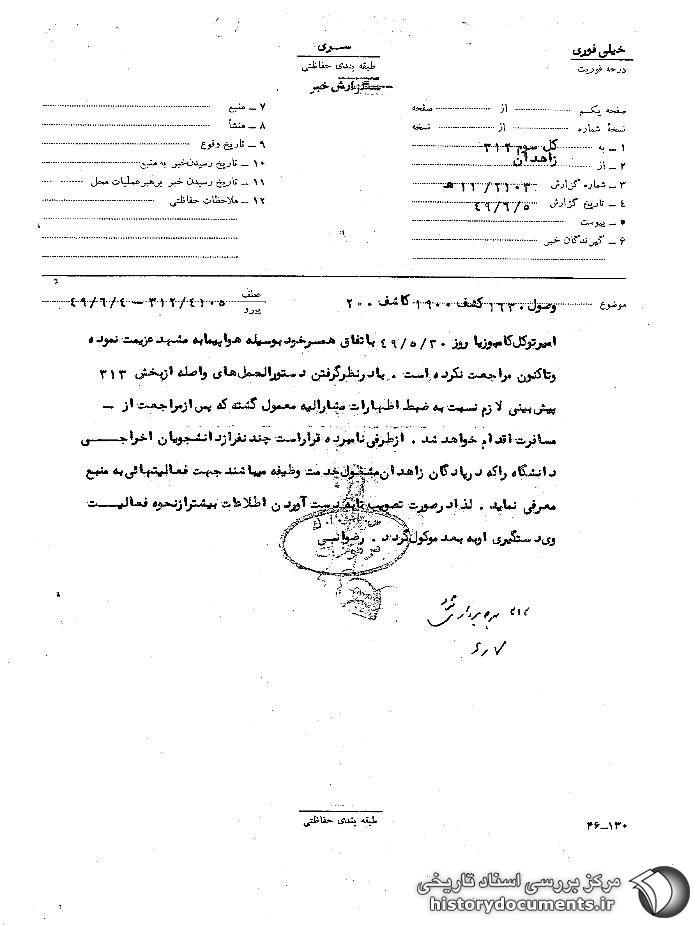 خیلی فوری
درجه فوریت
ســری
طبقه بندی حفاظتی
گزارش خبر
صفحه یکم از صفحه
نسخهٔ شماره از نسخه
۱ ـ به کل سوم ۳۱۲
۲ ـ از زاهدان
۳ ـ شماره گزارش ۲۱۰۳ / ۱۱ هـ
۴ ـ تاریخ گزارش ۴۹/۶/۵
۵ ـ پیوست
۶ ـ گیرندگان خبر
۷ ـ منبع
۸ ـ منشأ
۹ ـ تاریخ وقوع
۱۰ ـ تاریخ رسیدن خبر به منبع
۱۱ ـ تاریخ رسیدن خبر برهبر عملیات محل
۱۲ ـ ملاحظات حفاظتی
موضوع وصول ۱۶۳۰ کشف ۱۹۰۰ کاشف ۲۰۰
عطف پیرو ۳۱۲/۴۱۰۵ ـ ۴۹/۶/۴
امیرتوکل کامبوزیا روز ۴۹/۵/۳۰ باتفاق همسرخود بوسیله هواپیمابه مشهد عزیمت نموده
وتاکنون مراجعت نکرده است . بادرنظرگرفتن دستورالعمل های واصله ازبخش ۳۱۳
پیش بینی لازم نسبت به ضبط اظهارات مشارالیه معمول گشته که پس ازمراجعت از ـ
مسافرت اقدام خواهد شد . ازطرفی نامبرده قراراست چند نفرازدانشجویان اخراجــی
دانشگاه راکه درپادگان زاهدان مشغول خدمت وظیفه میباشند جهت فعالیتهائی به منبع
معرفی نماید . لذا درصورت تصویب تابدست آوردن اطلاعات بیشترازنحوه فعالیــت
وی دستگیری اوبه بعد موکول گردد . رضوانــی
بهره برداری شود
۶/۷
طبقه بندی حفاظتی
۴۶ـ۱۳۰
مرکز بررسی اسناد تاریخی
historydocuments.ir